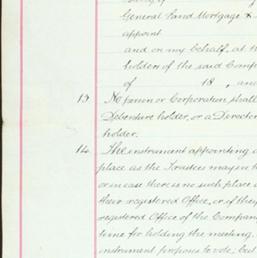 General Land Mortgage &
appoint
and on my behalf, at th
holders of the said Comp
of 18 , an
13 No person or Corporation shall
Debenture holder, or a Director
holder.
14 The instrument appointing a
place as the Trustees may in
or in case there is no such place
their registered Office, or if they
registered Office of the Compan
time for holding the meeting,
instrument proposes to vote; but